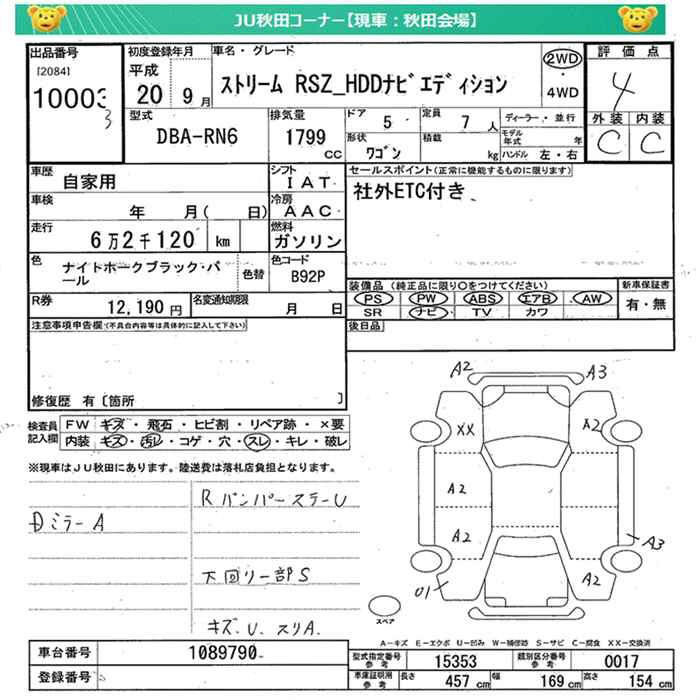 JU秋田コーナー【現車：秋田会場】
出品番号
[2084]
10003
3
初度登録年月
平成
20 9月
車名・グレード
ストリーム RSZ_HDDナビエディション
2WD
・
4WD
評価点
4
外装 内装
C C
型式
DBA-RN6
排気量
1799
cc
ドア 5
定員 7 人
形状 ワゴン
積載 kg
ディーラー・並行
モデル年式 年
ハンドル 左・右
車歴 自家用
シフト IAT
車検 年 月( 日)
冷房 AAC
走行 6万2千120 km
燃料 ガソリン
色 ナイトホークブラック・パール
色替
色コード B92P
R券 12,190円
名変通知期限 月 日
セールスポイント(正常に機能するものに限ります)
社外ETC付き
装備品 (純正品に限り〇をつけてください)
PS PW ABS エアB AW
SR ナビ TV カワ
新車保証書
有・無
後日品
注意事項申告欄(不具合内容等は具体的に記入して下さい)
修復歴 有〔箇所 〕
検査員記入欄
FW キズ・飛石・ヒビ割・リペア跡・×要
内装 キズ・汚レ・コゲ・穴・スレ・キレ・破レ
※現車はJU秋田にあります。陸送費は落札店負担となります。
RバンパーステーU
Dミラー A
下回リ一部S
キズ.U.スリA.
A2 A3
XX A2
A2
A2 A3
U1 A2
スペア
A-キズ E-エクボ U-凹み W-補修跡 S-サビ C-腐食 XX-交換済
車台番号 1089790
登録番号
型式指定番号 参考 15353
類別区分番号 参考 0017
車庫証明用 参考 長さ 457 cm 幅 169 cm 高さ 154 cm